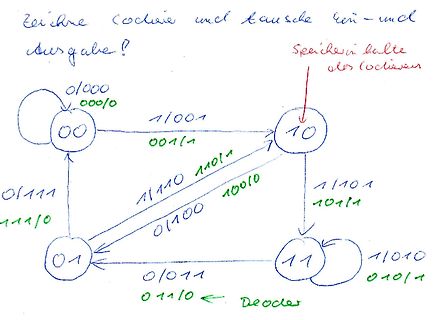 Zeichne Codierer und tausche Ein- und
Ausgabe!
Speicherinhalte
des Codierers
0/000
000/0
00
1/001
001/1
10
0/111
111/0
1/110
110/1
0/100
100/0
1/101
101/1
01
0/011
011/0 ← Decoder
11
1/010
010/1